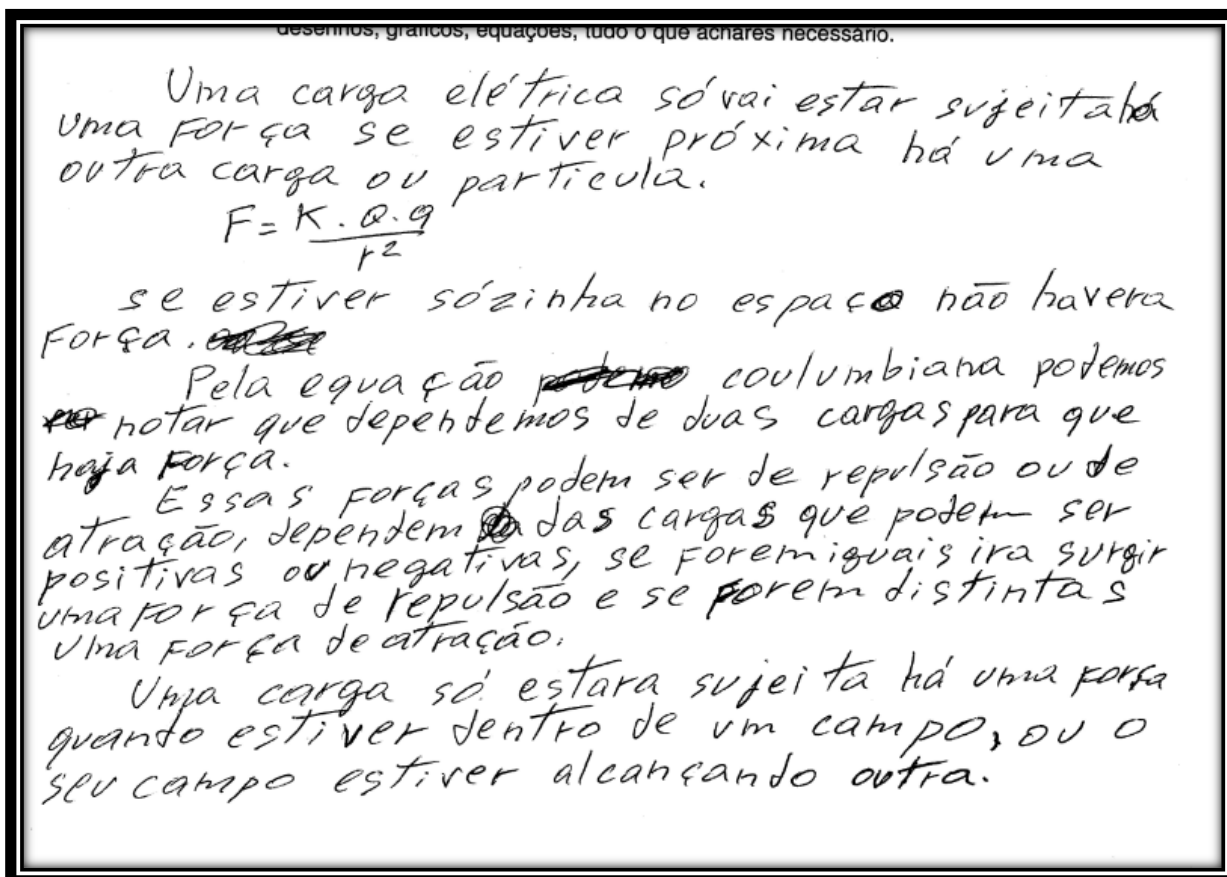 desenhos, gráficos, equações, tudo o que achares necessário.
Uma carga elétrica só vai estar sujeita há
uma força se estiver próxima há uma
outra carga ou partícula.
F = K . Q . q
r²
se estiver sózinha no espaço não havera
força.
Pela equação coulumbiana podemos
notar que dependemos de duas cargas para que
haja força.
Essas forças podem ser de repulsão ou de
atração, dependem das cargas que podem ser
positivas ou negativas, se forem iguais ira surgir
uma força de repulsão e se forem distintas
uma força de atração.
Uma carga só estara sujeita há uma força
quando estiver dentro de um campo, ou o
seu campo estiver alcançando outra.